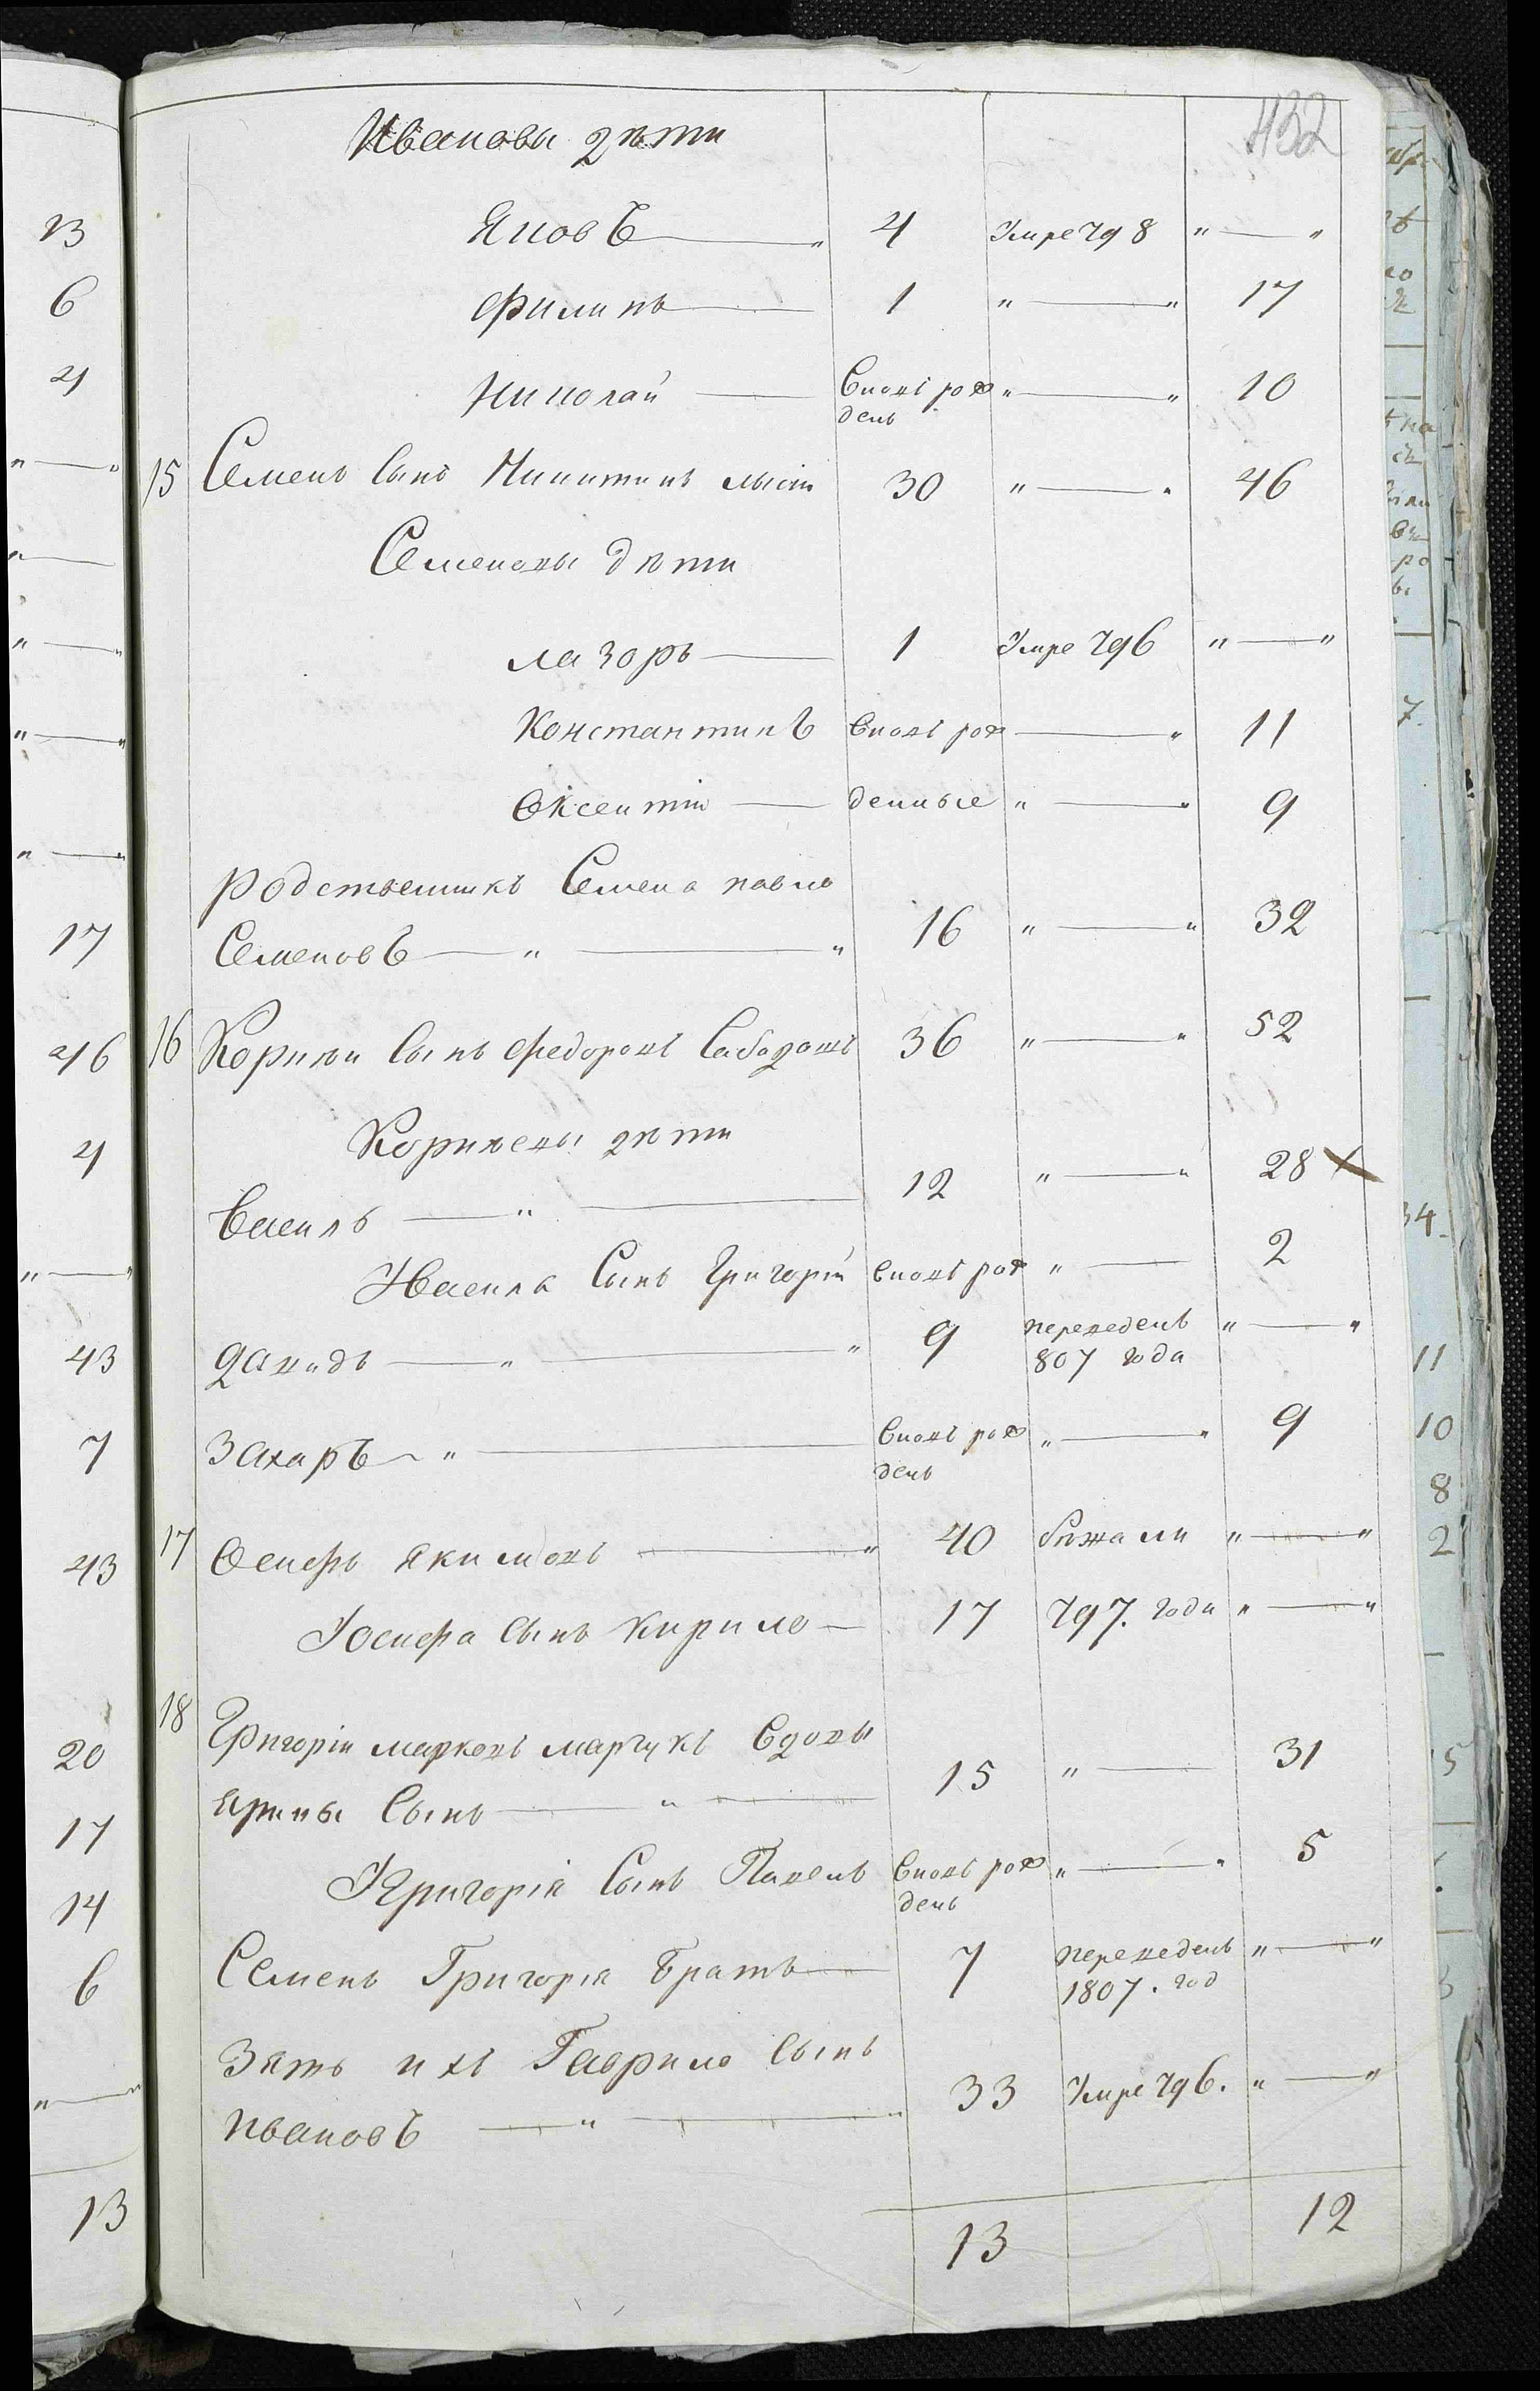 432
Ивановы дѣти
Яковъ — " 4 Умре 798 " — "
Филипъ — 1 " — " 17
Николай — вновь рож " — " 10
ден
15 Семенъ сынъ Никитинъ 30 " — " 46
Семеновы дѣти
Лазорь — 1 Умре 796 " — "
Константинъ вновь рож — " 11
Оксентій — денные " — " 9
родственникъ Семена павло
Семеновъ — " — " 16 " — " 32
16 Корнѣй сынъ Федоровъ Сабадашъ 36 " — " 52
Корнѣевы дѣти
Василь — " — 12 " — " 28 ×
У Василя сынъ Григорій вновь рож " — 2
Давидъ — " — " 9 переведенъ " — "
807 года
Захаръ — " — вновь рож " — " 9
денъ
17 Осифъ Якимовъ — " 40 бѣжали " — "
У Осифа сынъ Кирило — 17 797. года " — "
18 Григорій марковъ марчукъ вдовы
ярины сынъ — " — 15 " — 31
У Григорія сынъ Павелъ вновь рож " — " 5
денъ
Семенъ Григорія братъ — 7 переведенъ " — "
1807. год
Зять ихъ Гаврило сынъ
ивановъ — " — " 33 Умре 796. " — "
13 12
13
6
4
" — "
" —
" — "
" — "
" — "
17
46
4
" — "
43
7
43
20
17
14
6
" — "
13
7.
34.
11
10
8
2